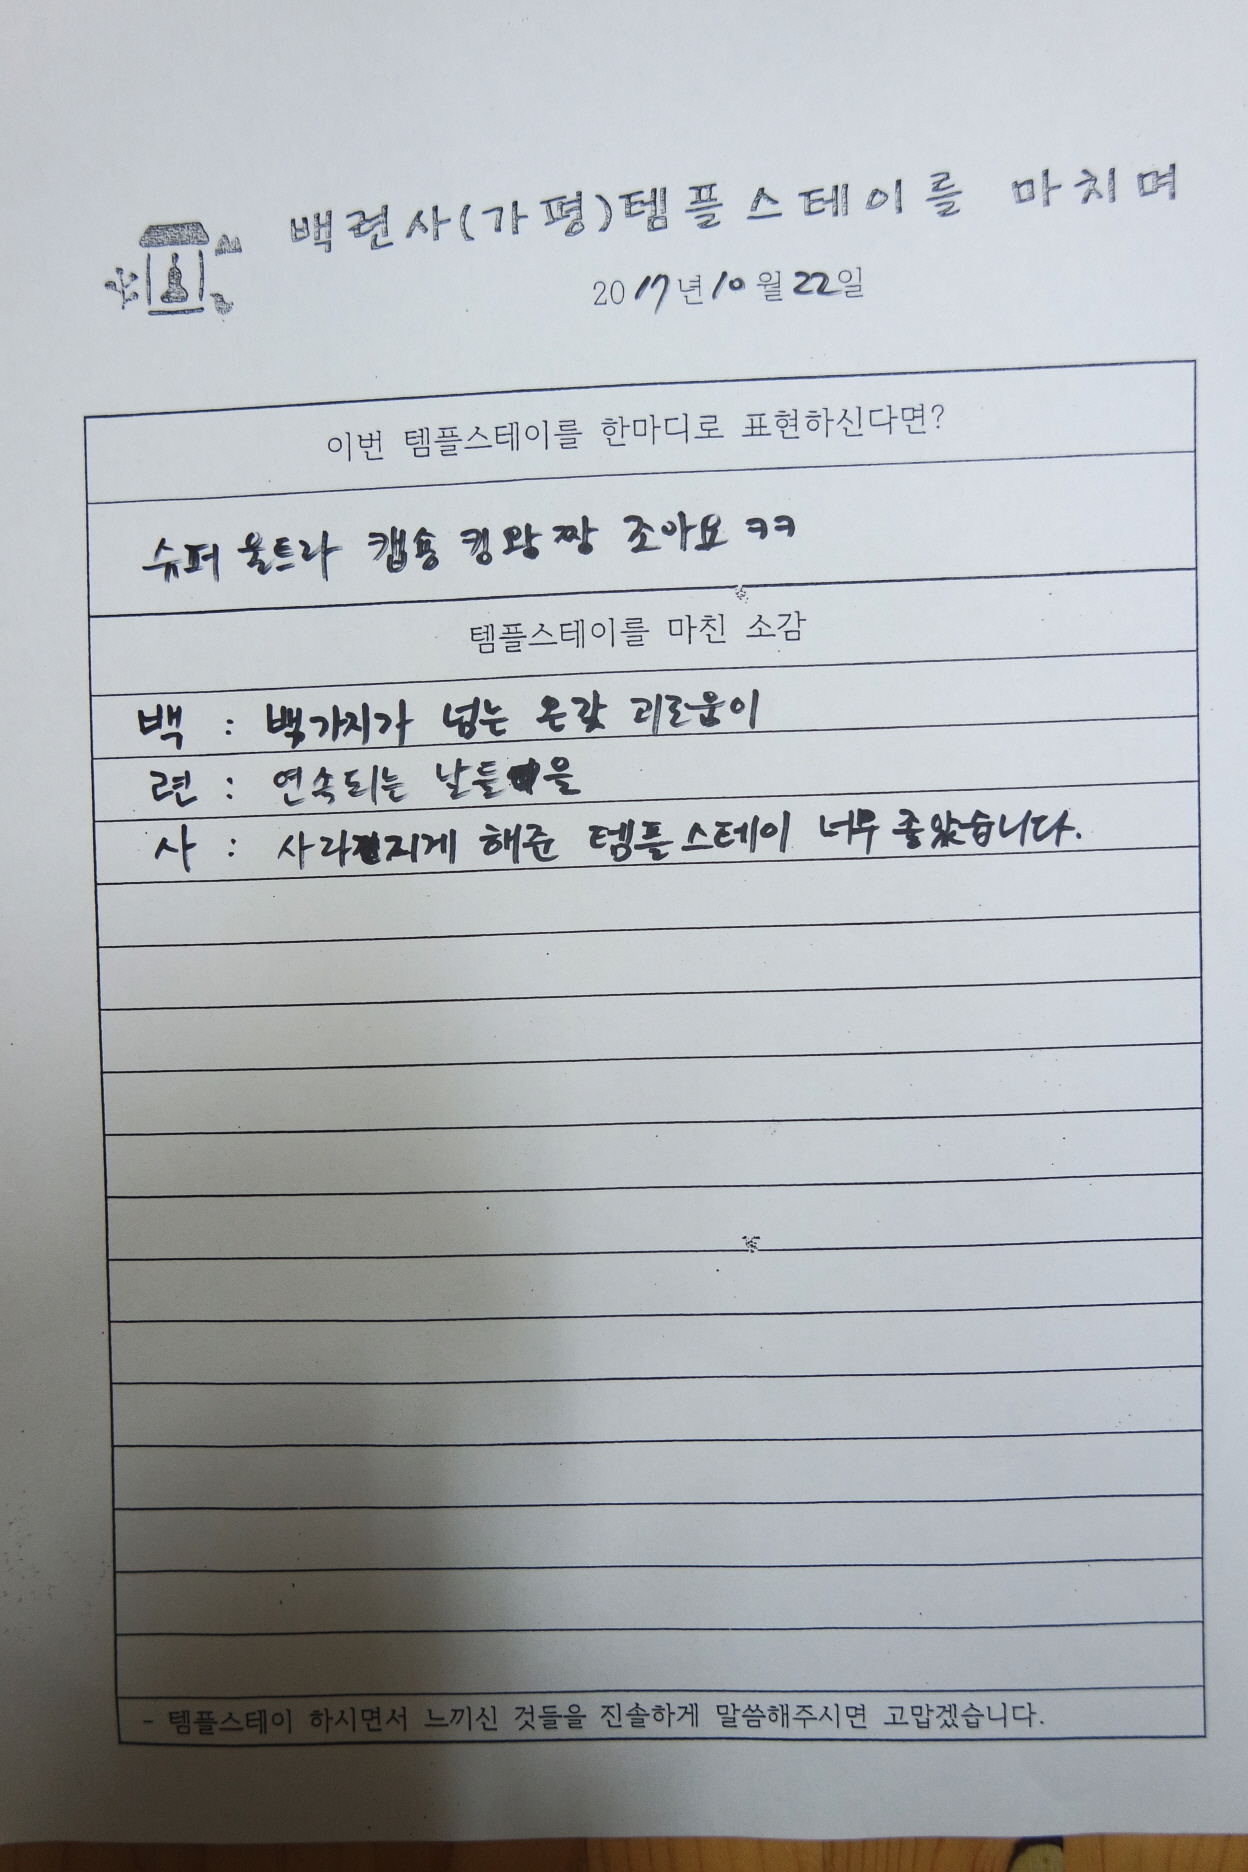 백련사(가평)템플스테이를 마치며
2017년 10월 22일
이번 템플스테이를 한마디로 표현하신다면?
슈퍼 울트라 캡숑 킹왕짱 조아요 ㅋㅋ
템플스테이를 마친 소감
백 : 백가지가 넘는 온갖 괴로움이
련 : 연속되는 날들을
사 : 사라지게 해준 템플스테이 너무 좋았습니다.
- 템플스테이 하시면서 느끼신 것들을 진솔하게 말씀해주시면 고맙겠습니다.